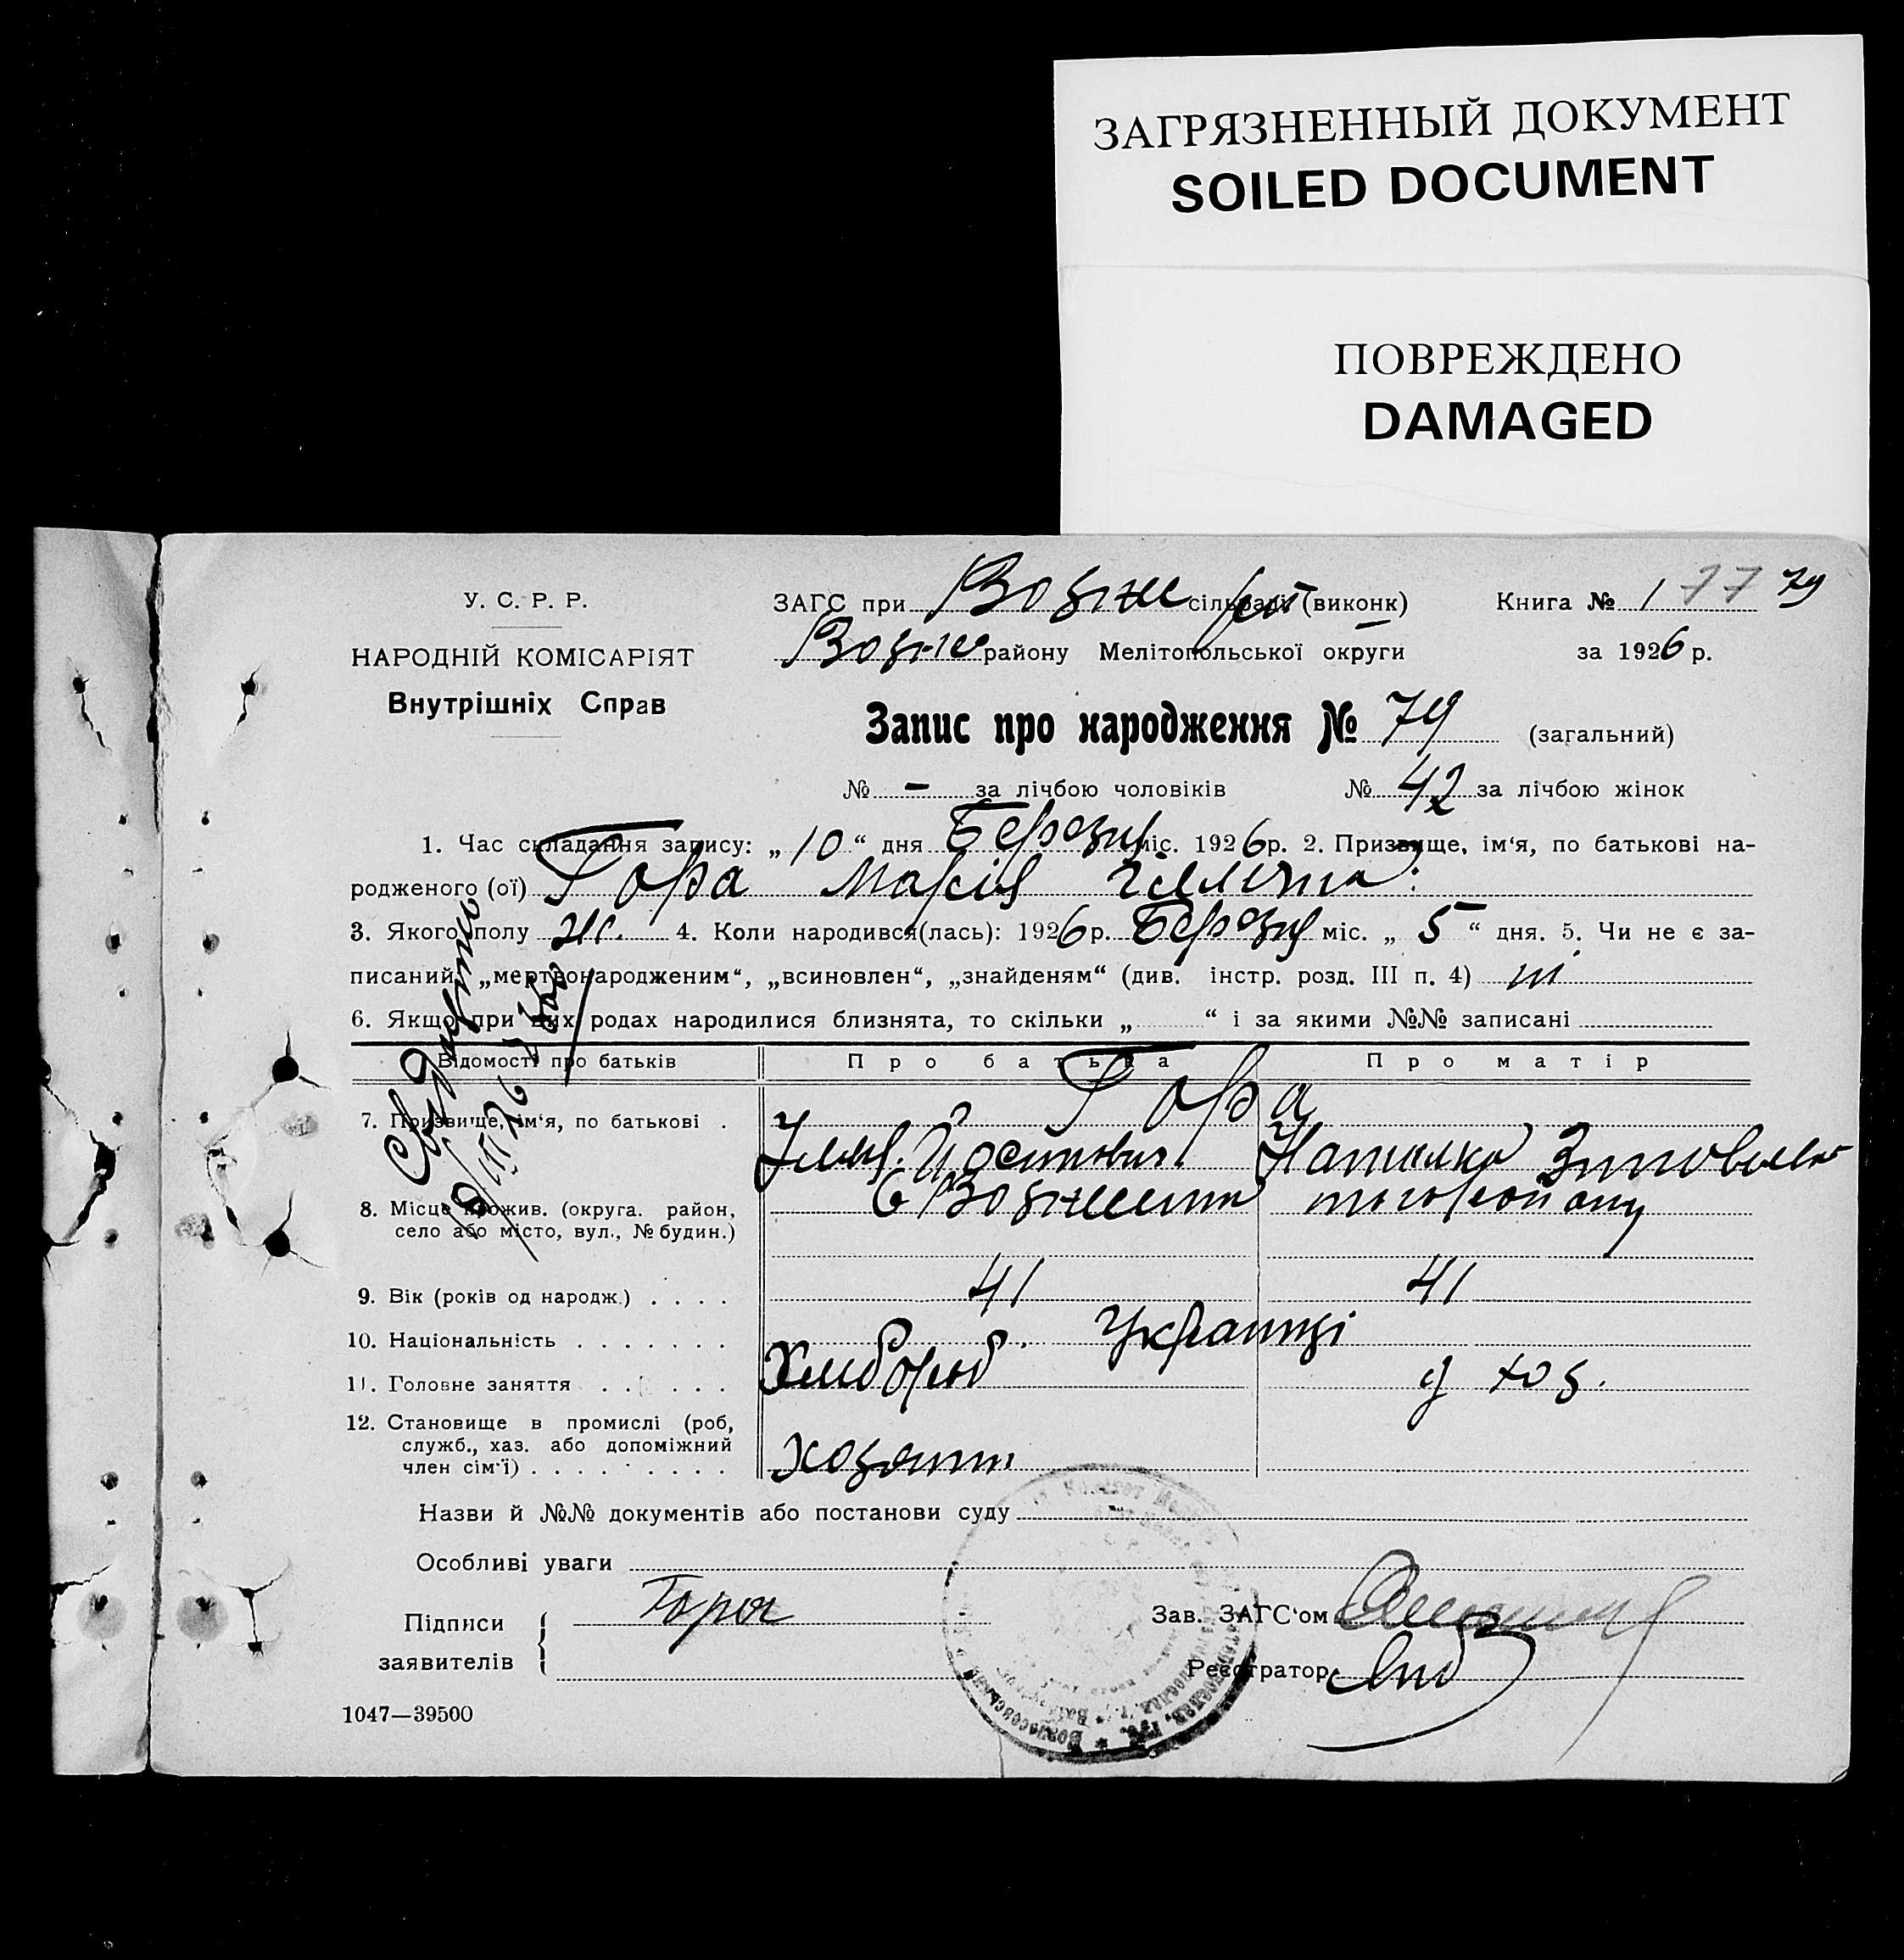 ЗАГРЯЗНЕННЫЙ ДОКУМЕНТ
SOILED DOCUMENT
ПОВРЕЖДЕНО
DAMAGED
У. С. Р. Р.
НАРОДНІЙ КОМІСАРІЯТ
Внутрішніх Справ
ЗАГС при Возне сільради (виконк)
Книга № 1 77 79
Возне району Мелітопольської округи
за 1926 р.
Запис про народження № 79 (загальний)
№ – за лічбою чоловіків № 42 за лічбою жінок
1. Час складання запису: „ 10 “ дня Березня міс. 1926 р. 2. Призвище, ім‘я, по батькові на-
родженого (ої) Гора Марія
3. Якого полу Ж. 4. Коли народився(лась): 1926 р. Березня міс. „ 5 “ дня. 5. Чи не є за-
писаний „мертвонародженим“, „всиновлен“, „знайденям“ (див. інстр. розд. III п. 4) ні
6. Якщо при цих родах народилися близнята, то скільки „ “ і за якими №№ записані
Відомості про батьків Про батька Про матір
7. Призвище, ім‘я, по батькові . Гора
Йосипович Наталка Зиновієва
8. Місце прожив. (округа. район,
село або місто, вул., № будин.)
9. Вік (років од народж.) . . . . 41 41
10. Національність . . . . . . . Українці
11. Головне заняття . . . . . . Хлібороб д хоз.
12. Становище в промислі (роб,
служб., хаз. або допоміжний
член сім‘ї) . . . . . . . . . хозяїн
Назви й №№ документів або постанови суду
Особливі уваги
Підписи
заявителів
Гора
Зав. ЗАГС‘ом
Реєстратор
1047—39500